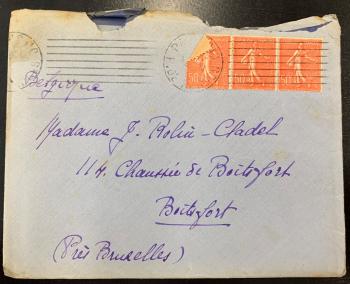 Belgique
50 50 50
Madame J. Rolin-Cladel
114 Chaussée de Boitsfort
Boitsfort
(Près Bruxelles)